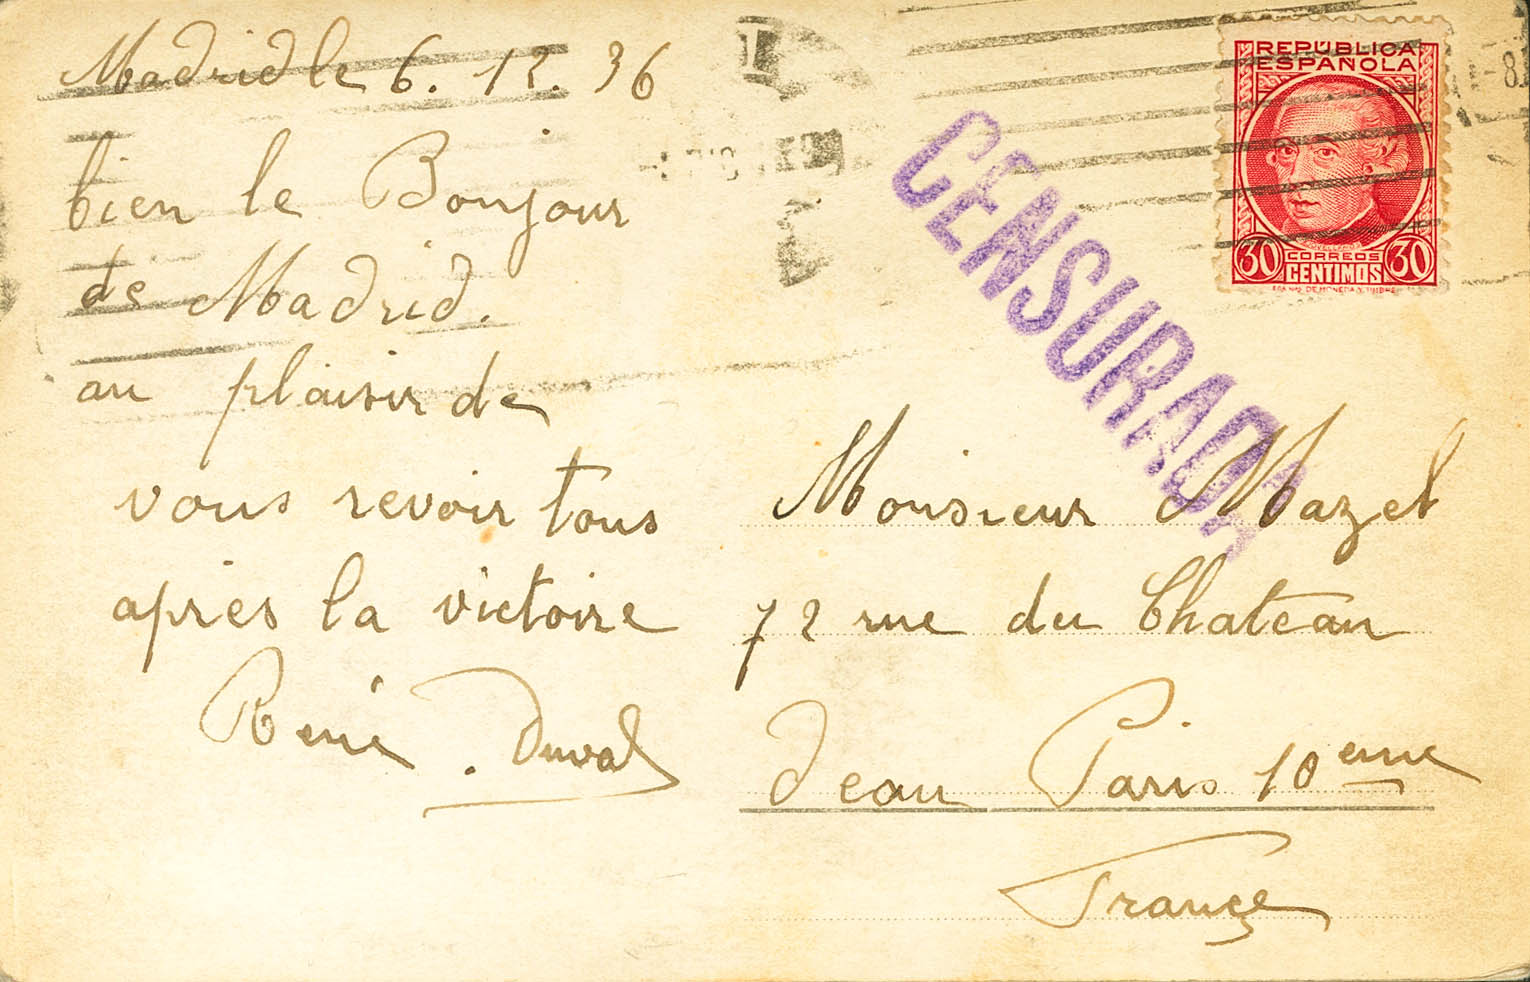 Madrid le 6. 12. 36
bien le Bonjour
de Madrid.
au plaisir de
vous revoir tous
après la victoire
René . Duval
REPÚBLICA
ESPAÑOLA
30 CORREOS 30
CENTIMOS
CENSURADA
Monsieur Mazet
72 rue du Chateau
Deau Paris 10eme
France